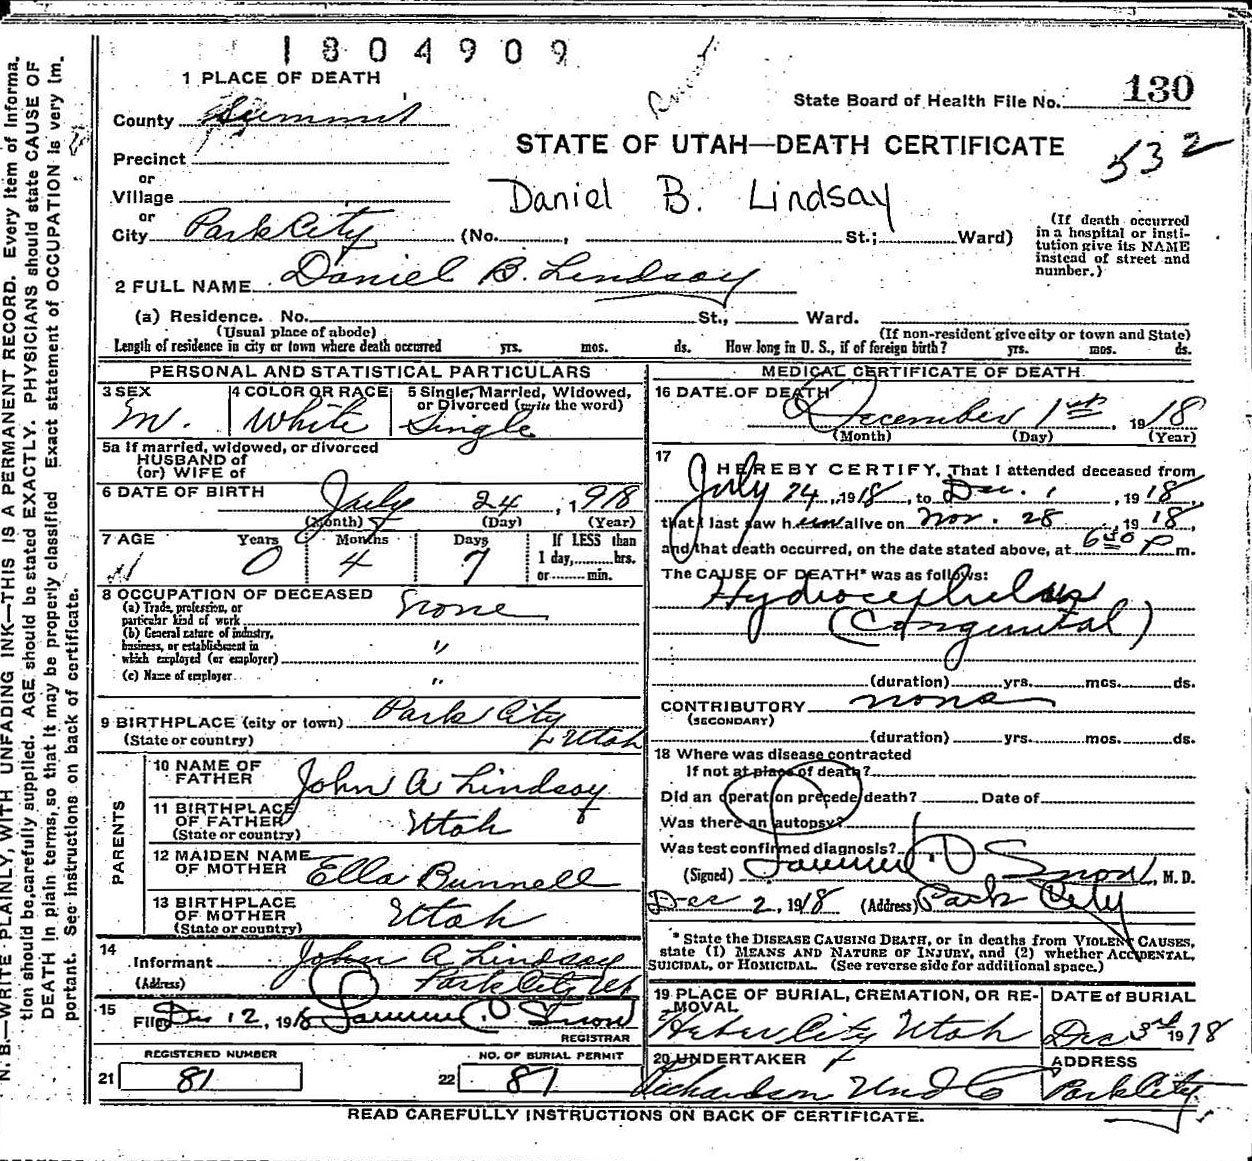 1804909
1 PLACE OF DEATH
State Board of Health File No. 130
County Summit
STATE OF UTAH—DEATH CERTIFICATE
532
Precinct
or
Village
Daniel B. Lindsay
or
City Park City (No. , St.; Ward)
(If death occurred in a hospital or insti-
tution give its NAME
instead of street and
number.)
2 FULL NAME Daniel B. Lindsay
(a) Residence. No. St., Ward.
(Usual place of abode) (If non-resident give city or town and State)
Length of residence in city or town where death occurred yrs. mos. ds. How long in U. S., if of foreign birth? yrs. mos. ds.
PERSONAL AND STATISTICAL PARTICULARS
3 SEX 4 COLOR OR RACE 5 Single, Married, Widowed,
or Divorced (write the word)
M. White Single
5a If married, widowed, or divorced
HUSBAND of
(or) WIFE of
6 DATE OF BIRTH July 24, 1918
(Month) (Day) (Year)
7 AGE Years Months Days If LESS than
1 day, hrs.
or min.
0 4 7
8 OCCUPATION OF DECEASED
(a) Trade, profession, or
particular kind of work none
(b) General nature of industry,
business, or establishment in
which employed (or employer) "
(c) Name of employer "
9 BIRTHPLACE (city or town) Park City
(State or country) Utah
PARENTS
10 NAME OF
FATHER John A Lindsay
11 BIRTHPLACE
OF FATHER Utah
(State or country)
12 MAIDEN NAME
OF MOTHER Ella Bunnell
13 BIRTHPLACE
OF MOTHER Utah
(State or country)
14
Informant John A. Lindsay
(Address) Park City Ut
15
Filed Dec 12, 1918 Snow
REGISTRAR
REGISTERED NUMBER NO. OF BURIAL PERMIT
21 81 22 81
MEDICAL CERTIFICATE OF DEATH
16 DATE OF DEATH
December 1st, 1918
(Month) (Day) (Year)
17
I HEREBY CERTIFY, That I attended deceased from
July 24, 1918, to Dec. 1, 1918,
that I last saw him alive on Nov. 28, 1918,
and that death occurred, on the date stated above, at 6 30 P m.
The CAUSE OF DEATH* was as follows:
Hydrocephelus
(Congenital)
(duration) yrs. mos. ds.
CONTRIBUTORY none
(SECONDARY)
(duration) yrs. mos. ds.
18 Where was disease contracted
If not at place of death?
Did an operation precede death? Date of
Was there an autopsy?
Was test confirmed diagnosis?
(Signed) Snow, M. D.
Dec 2, 1918 (Address) Park City
* State the DISEASE CAUSING DEATH, or in deaths from VIOLENT CAUSES,
state (1) MEANS AND NATURE OF INJURY, and (2) whether ACCIDENTAL,
SUICIDAL, or HOMICIDAL. (See reverse side for additional space.)
19 PLACE OF BURIAL, CREMATION, OR RE-
MOVAL
DATE of BURIAL
Heber City Utah Dec 3rd 1918
20 UNDERTAKER ADDRESS
Richardson Und Co Park City
READ CAREFULLY INSTRUCTIONS ON BACK OF CERTIFICATE.
N. B.—WRITE PLAINLY, WITH UNFADING INK—THIS IS A PERMANENT RECORD. Every item of informa-
tion should be carefully supplied. AGE should be stated EXACTLY. PHYSICIANS should state CAUSE OF
DEATH in plain terms, so that it may be properly classified. Exact statement of OCCUPATION is very im-
portant. See instructions on back of certificate.